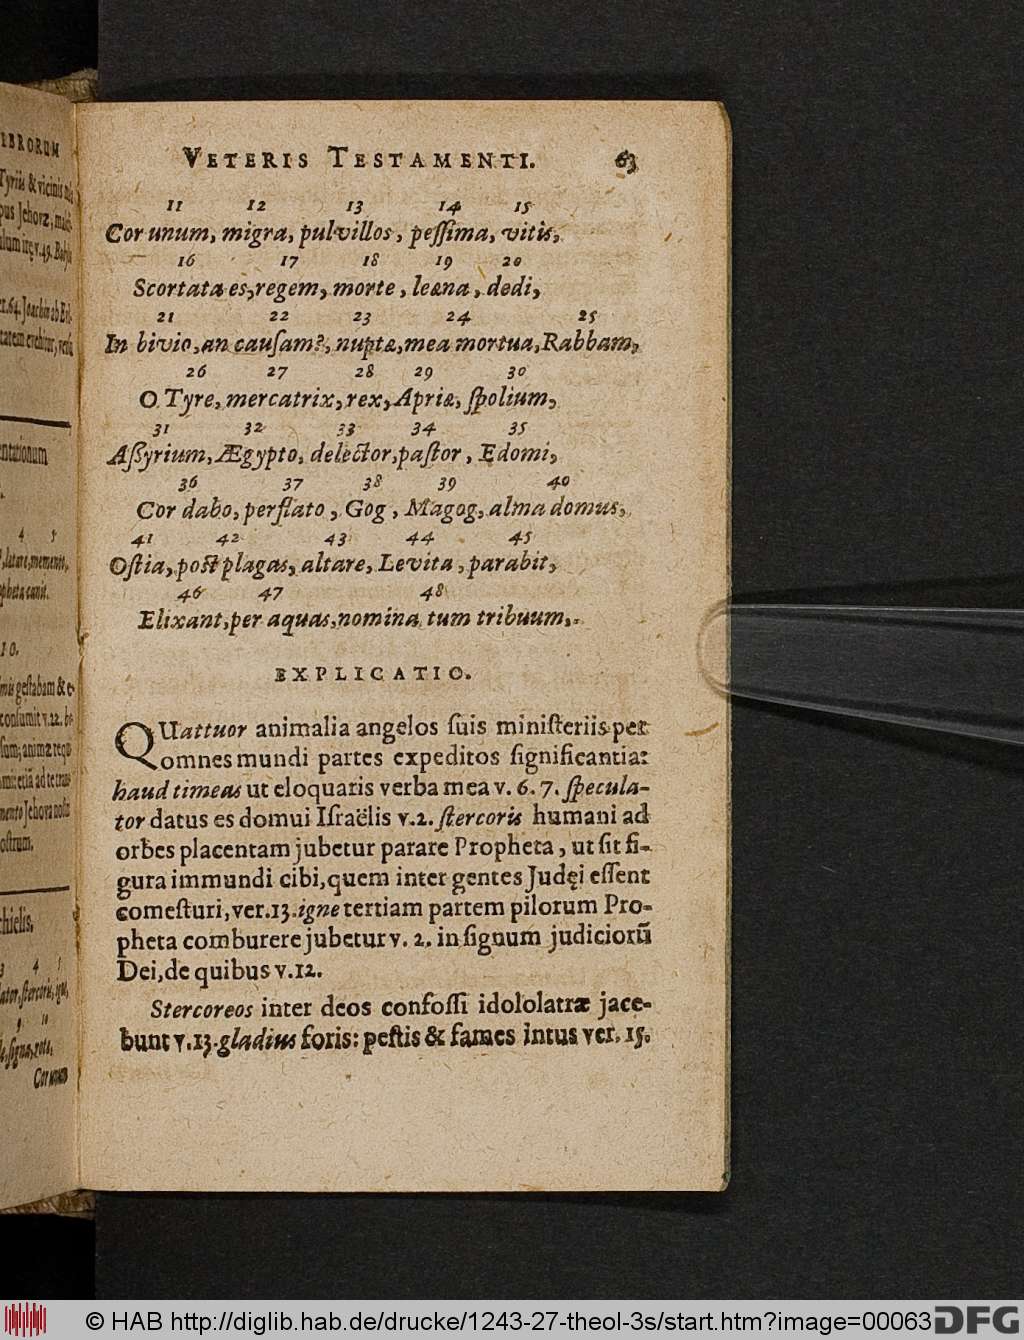 VETERIS TESTAMENTI. 63
11 12 13 14 15
Cor unum, migra, pulvillos, peſſima, vitis,
16 17 18 19 20
Scortata es, regem, morte, leæna, dedi,
21 22 23 24 25
In bivio, an cauſam?, nuptæ, mea mortua, Rabbam,
26 27 28 29 30
O Tyre, mercatrix, rex, Apriæ, ſpolium,
31 32 33 34 35
Aßyrium, Ægypto, delector, paſtor, Edomi,
36 37 38 39 40
Cor dabo, perflato, Gog, Magog, alma domus,
41 42 43 44 45
Oſtia, poſt plagas, altare, Levita, parabit,
46 47 48
Elixant, per aquas, nomina tum tribuum,.
EXPLICATIO.
QUattuor animalia angelos ſuis miniſteriis per
omnes mundi partes expeditos ſignificantia:
haud timeas ut eloquaris verba mea v. 6. 7. ſpecula-
tor datus es domui Iſraëlis v.2. ſtercoris humani ad
orbes placentam jubetur parare Propheta, ut ſit fi-
gura immundi cibi, quem inter gentes Judęi eſſent
comeſturi, ver.13. igne tertiam partem pilorum Pro-
pheta comburere jubetur v. 2. in ſignum judiciorū
Dei, de quibus v.12.
Stercoreos inter deos confoſſi idololatræ jace-
bunt v.13. gladius foris: peſtis & fames intus ver. 15.
© HAB http://diglib.hab.de/drucke/1243-27-theol-3s/start.htm?image=00063
DFG